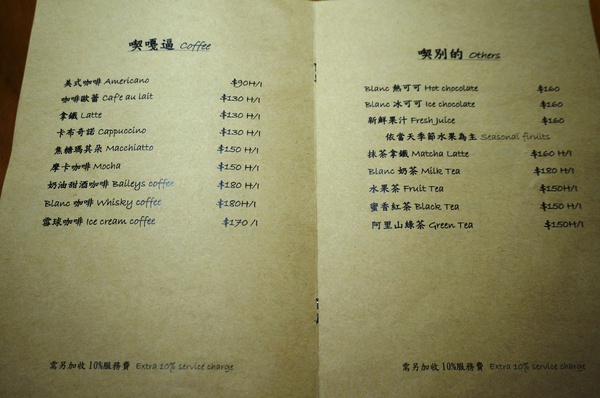 喫嘎逼 Coffee
美式咖啡 Americano $90H/I
咖啡歐蕾 Caf'e au lait $130 H/I
拿鐵 Latte $130 H/I
卡布奇諾 Cappuccino $130 H/I
焦糖瑪其朵 Macchiatto $150 H/I
摩卡咖啡 Mocha $150 H/I
奶油甜酒咖啡 Baileys coffee $180 H/I
Blanc 咖啡 Whisky coffee $180H/I
雪球咖啡 Ice cream coffee $170 /I
需另加收 10%服務費 Extra 10% service charge
喫別的 Others
Blanc 熱可可 Hot chocolate $160
Blanc 冰可可 Ice chocolate $160
新鮮果汁 Fresh Juice $160
依當天季節水果為主 Seasonal firuits
抹茶拿鐵 Matcha Latte $160 H/I
Blanc 奶茶 Milk Tea $180 H/I
水果茶 Fruit Tea $150H/I
蜜香紅茶 Black Tea $150 H/I
阿里山綠茶 Green Tea $150H/I
需另加收 10%服務費 Extra 10% service charge